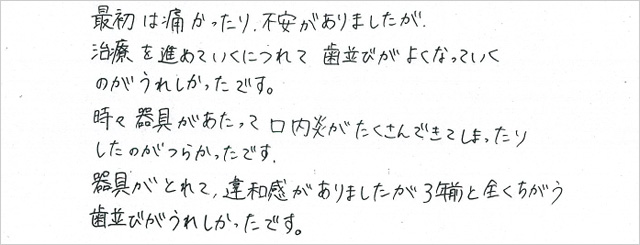 最初は痛かったり、不安がありましたが、
治療を進めていくにつれて 歯並びがよくなっていく
のがうれしかったです。
時々器具があたって口内炎がたくさんできてしまったり
したのがつらかったです。
器具がとれて、違和感がありましたが3年前と全くちがう
歯並びがうれしかったです。